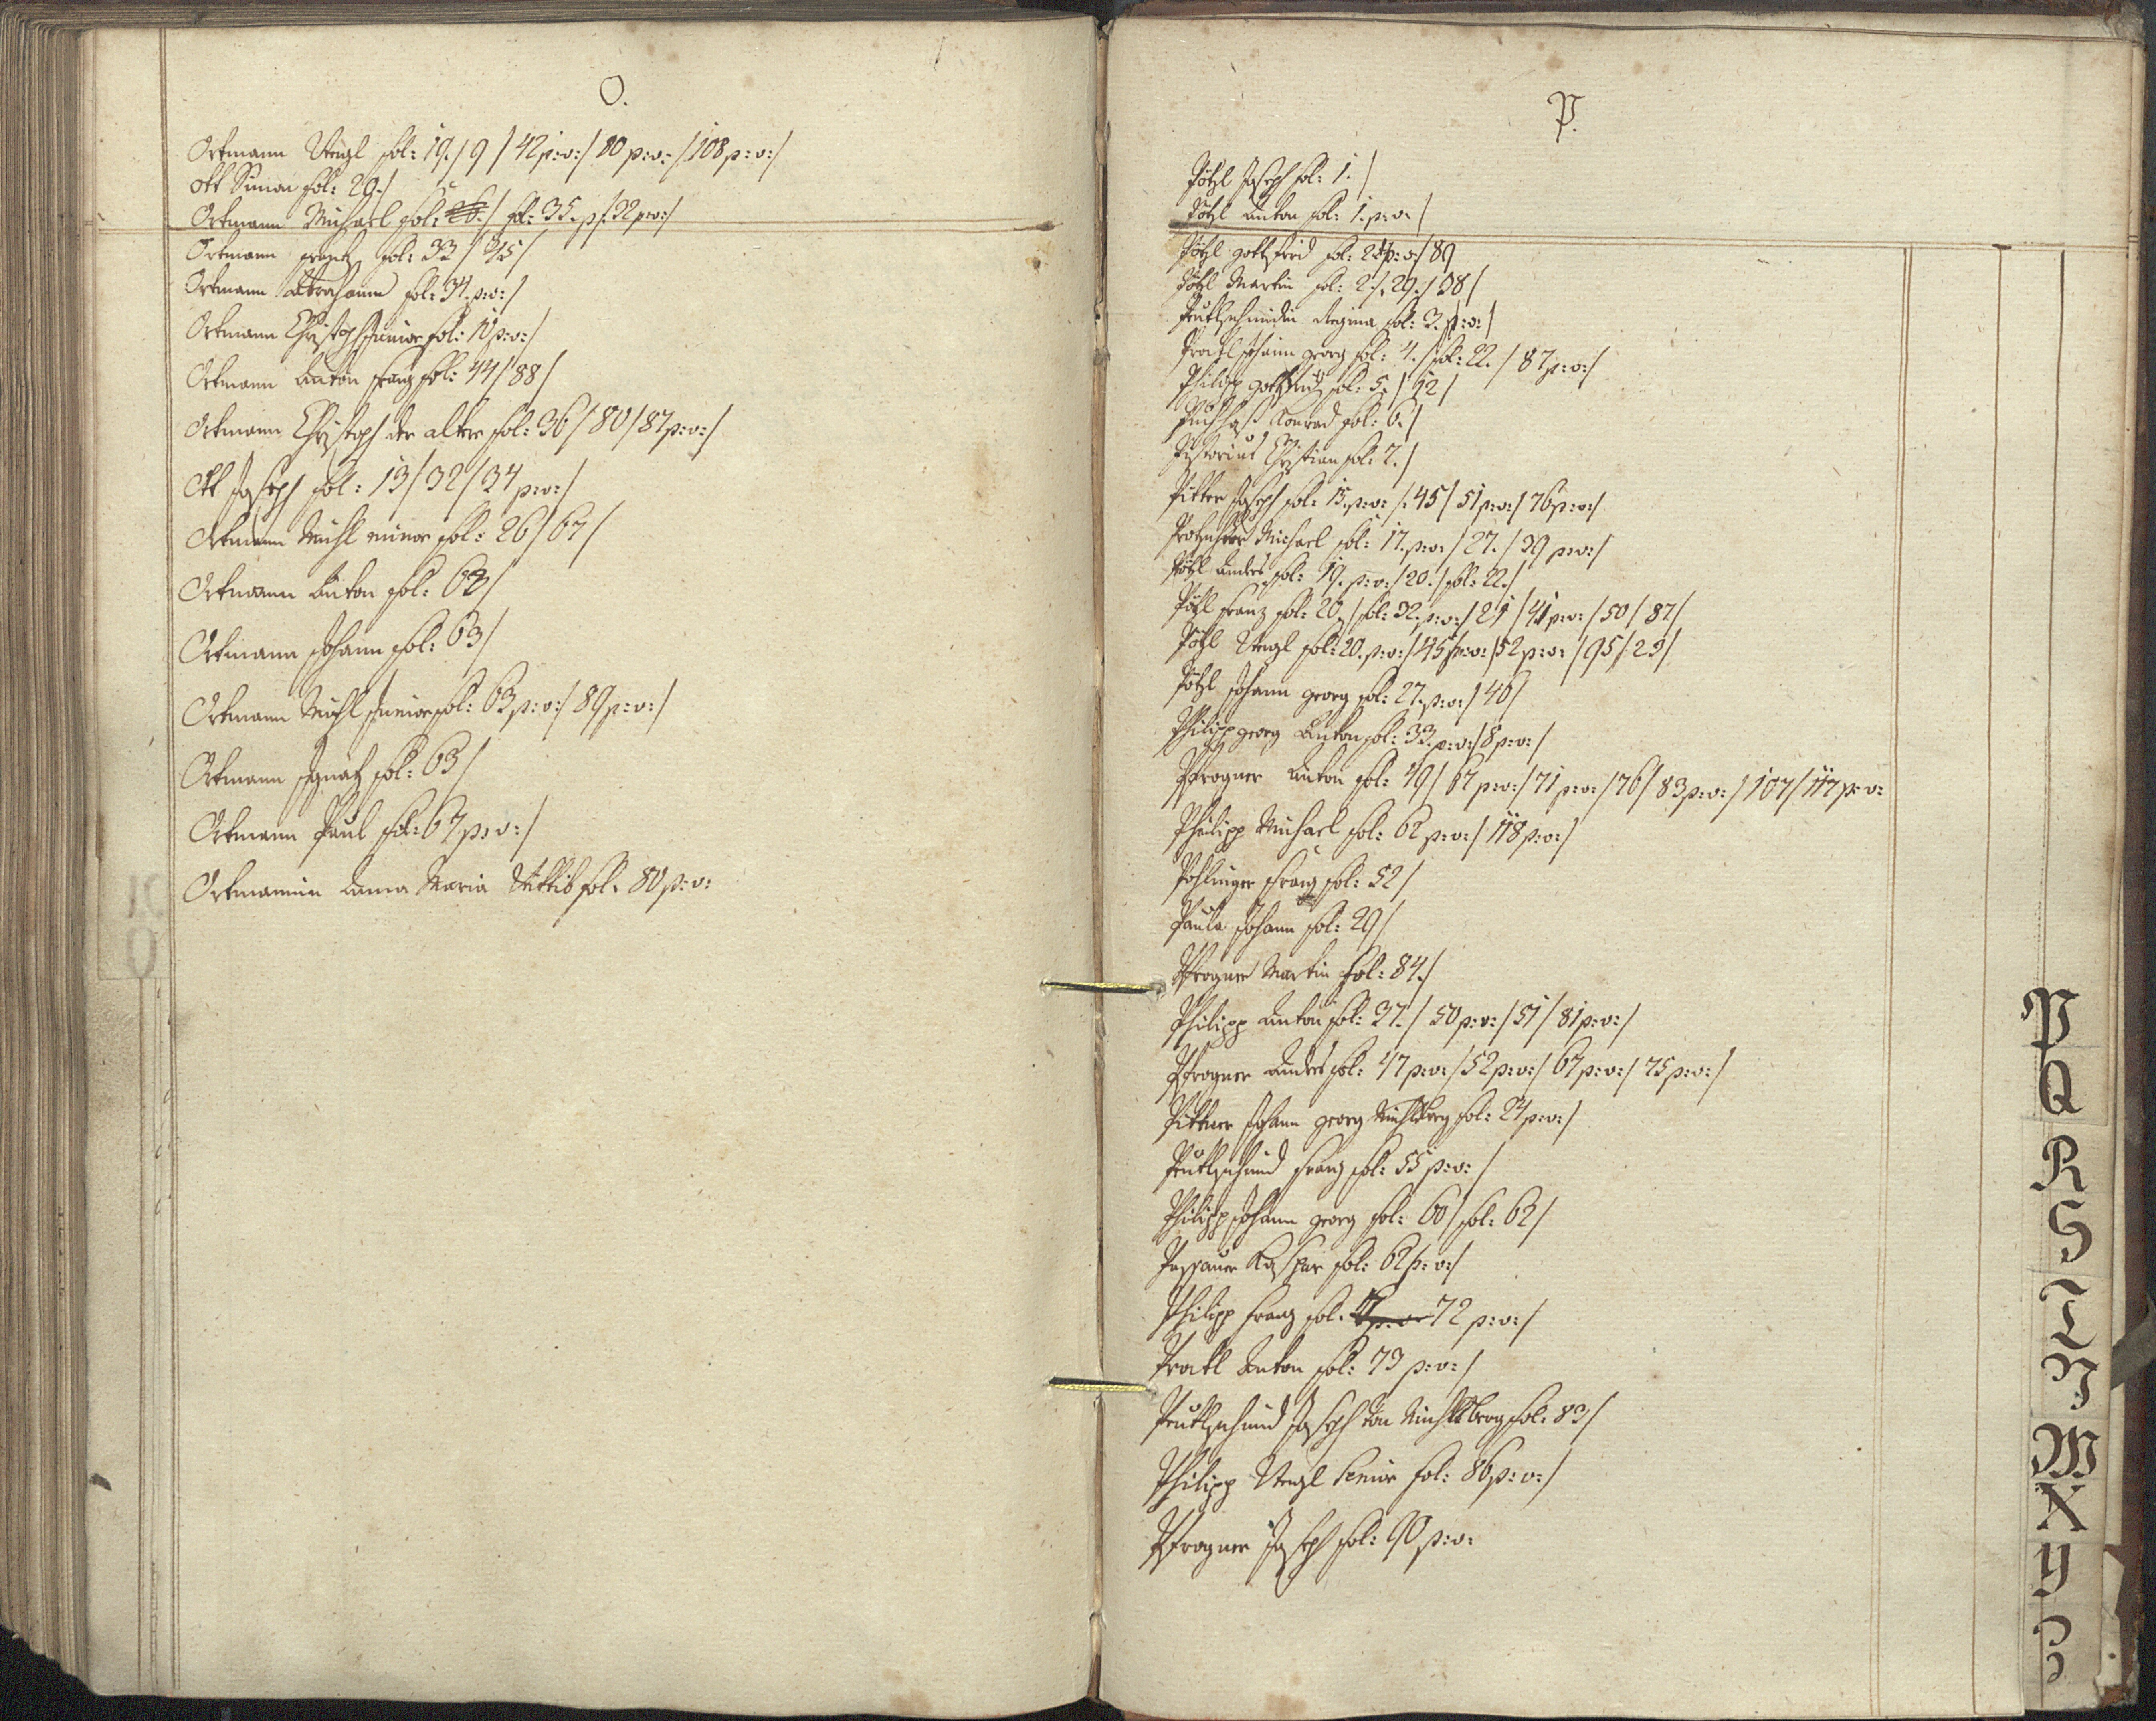 O.
Ortmann Veitzl fol: 19./9/42 p:v:/80 p:v:/108 p:v:/
Ott Simon fol: 29./
Ortmann Michael fol: 26./ fol: 35. p/.32 p:v:/
Ortmann fol: 33/
Ortmann Abraham fol: 34. p:v:/
Ortmann Christoph Junior fol: 10 p:v:/
Ortmann Anton Franz fol: 44/88/
Ortmann Christoph der alter fol: 36/80/87 p:v:/
Ott Joseph fol: 13/32/34 p:v:/
Ortmann Michl minor fol: 26/67/
Ortmann Anton fol: 62/
Ortmann Johann fol: 63/
Ortmann Michl Junior fol: 63 p:v:/89 p:v:/
Ortmann Ignatz fol: 63/
Ortmann Paul fol: 67 p:v:/
Ortmannin Anna Maria Wittib fol: 80 p:v:
P.
Pötzl Joseph fol: 1./
Pötzl Anton fol: 1. p:v:/
Pötzl Gottfried fol: p:v:/89
Pötzl Martin fol: 2./29./38/
Peutlschmidin Regina fol: 3. p:v:/
Pratl Johann Georg fol: 4./fol: 22./87 p:v:/
Philipp Gottfried fol: 5./12/
Konrad fol: 6./
Pistorius Christian fol: 7./
Pitter Joseph fol: 15. p:v:/.45/51 p:v:/76 p:v:/
Michael fol: 17. p:v:/27./39 p:v:/
Pötzl Andres fol: 19. p:v:/20./fol: 22./
Pötzl Franz fol: 20./fol: 32. p:v:/21/41 p:v:/50/87/
Pötzl Veitzl fol: 20. p:v:/45 p:v:/52 p:v:/95/29/
Pötzl Johann Georg fol: 27. p:v:/46/
Philipp Georg Anton fol: 33. p:v:/8 p:v:/
Pfrogner Anton fol: 49/67 p:v:/71 p:v:/76/83 p:v:/107/117 p:v:
Philipp Michael fol: 62 p:v:/118 p:v:/
Pöhlinger Franz fol: 52/
Paula Johann fol: 29/
Pfrogner Martin fol: 84./
Philipp Anton fol: 37./50 p:v:/51/81 p:v:/
Pfrogner Andres fol: 47 p:v:/52 p:v:/67 p:v:/75 p:v:/
Pittner Johann Georg fol: 24 p:v:/
Peutlschmid Franz fol: 55 p:v:/
Philipp Johann Georg fol: 60/fol: 62/
Passauer Kaspar fol: 62 p:v:/
Philipp Franz fol: 72 p:v:/
Pratl Anton fol: 73 p:v:/
Peutlschmid Joseph fol: 83/
Philipp Veitzl Senior fol: 86 p:v:/
Pfrogner Joseph fol: 90 p:v:
P
Q
R
S
T
V
W
X
Y
Z